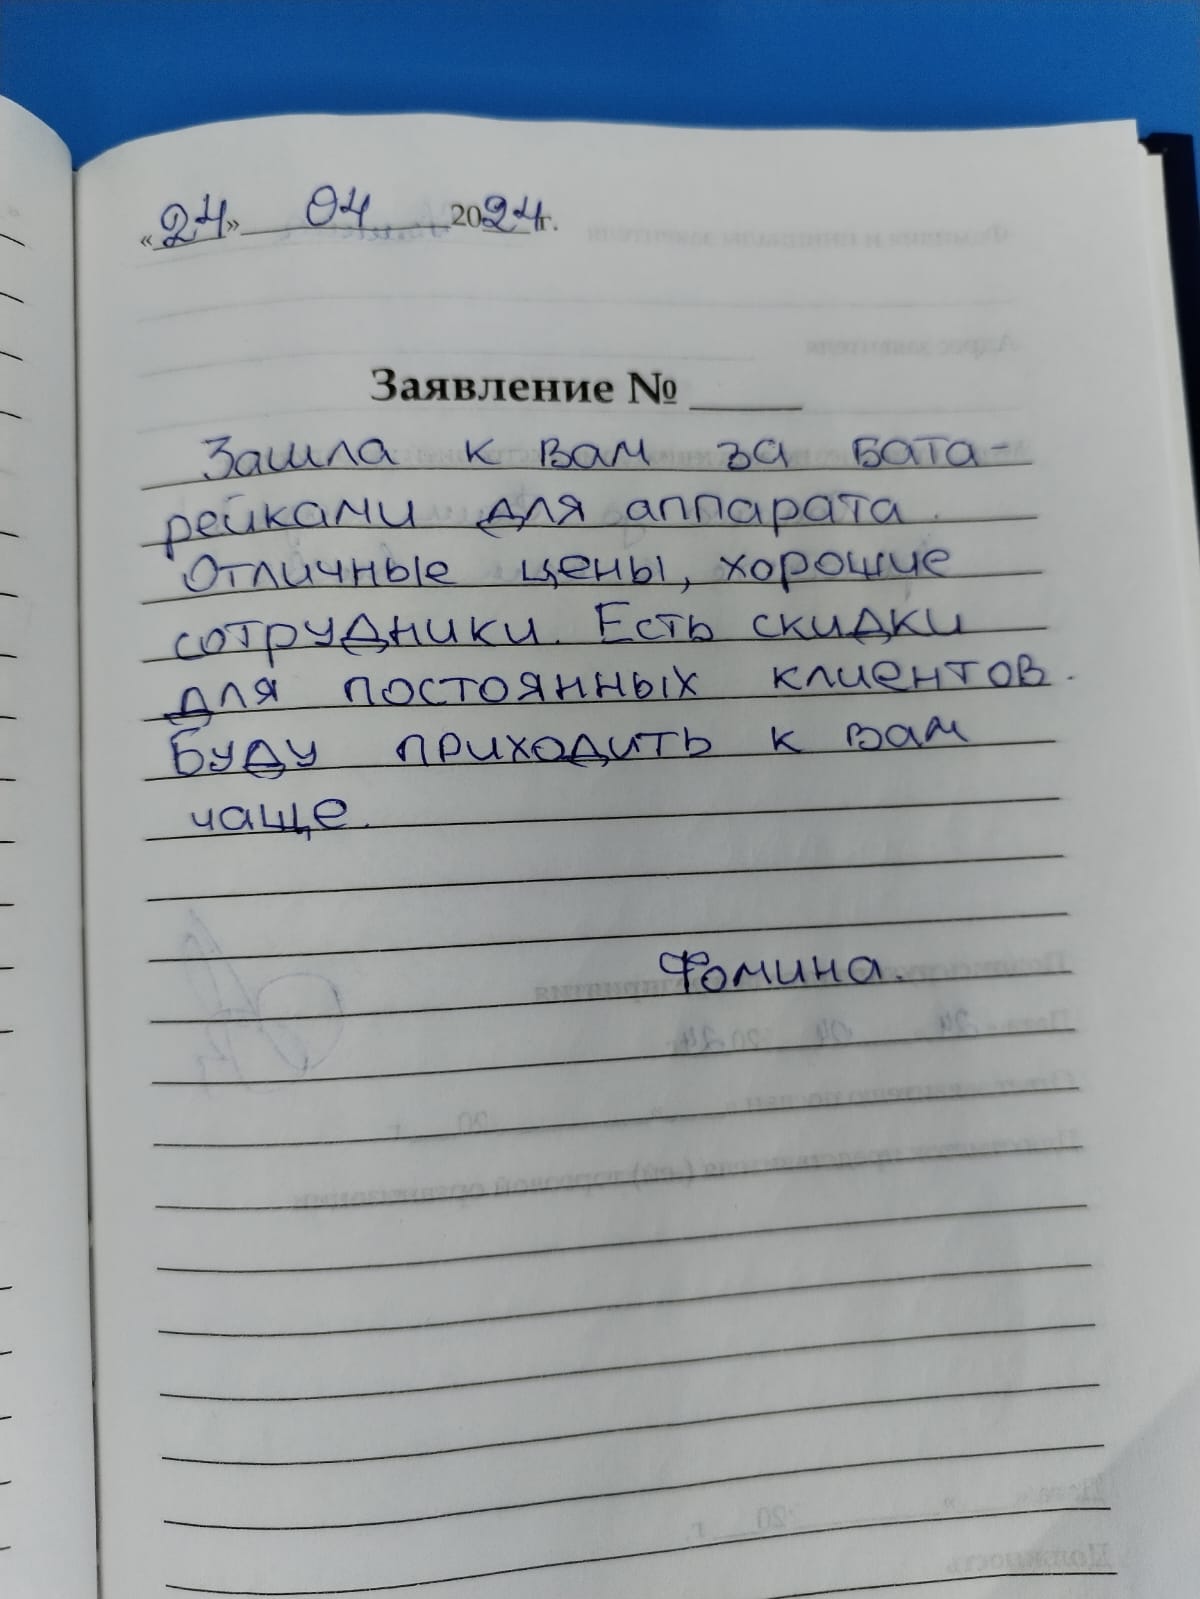 «24» 04 2024г.
Заявление № ____
Зашла к вам за бата-
рейками для аппарата.
Отличные цены, хорошие
сотрудники. Есть скидки
для постоянных клиентов.
Буду приходить к вам
чаще.
Фомина.